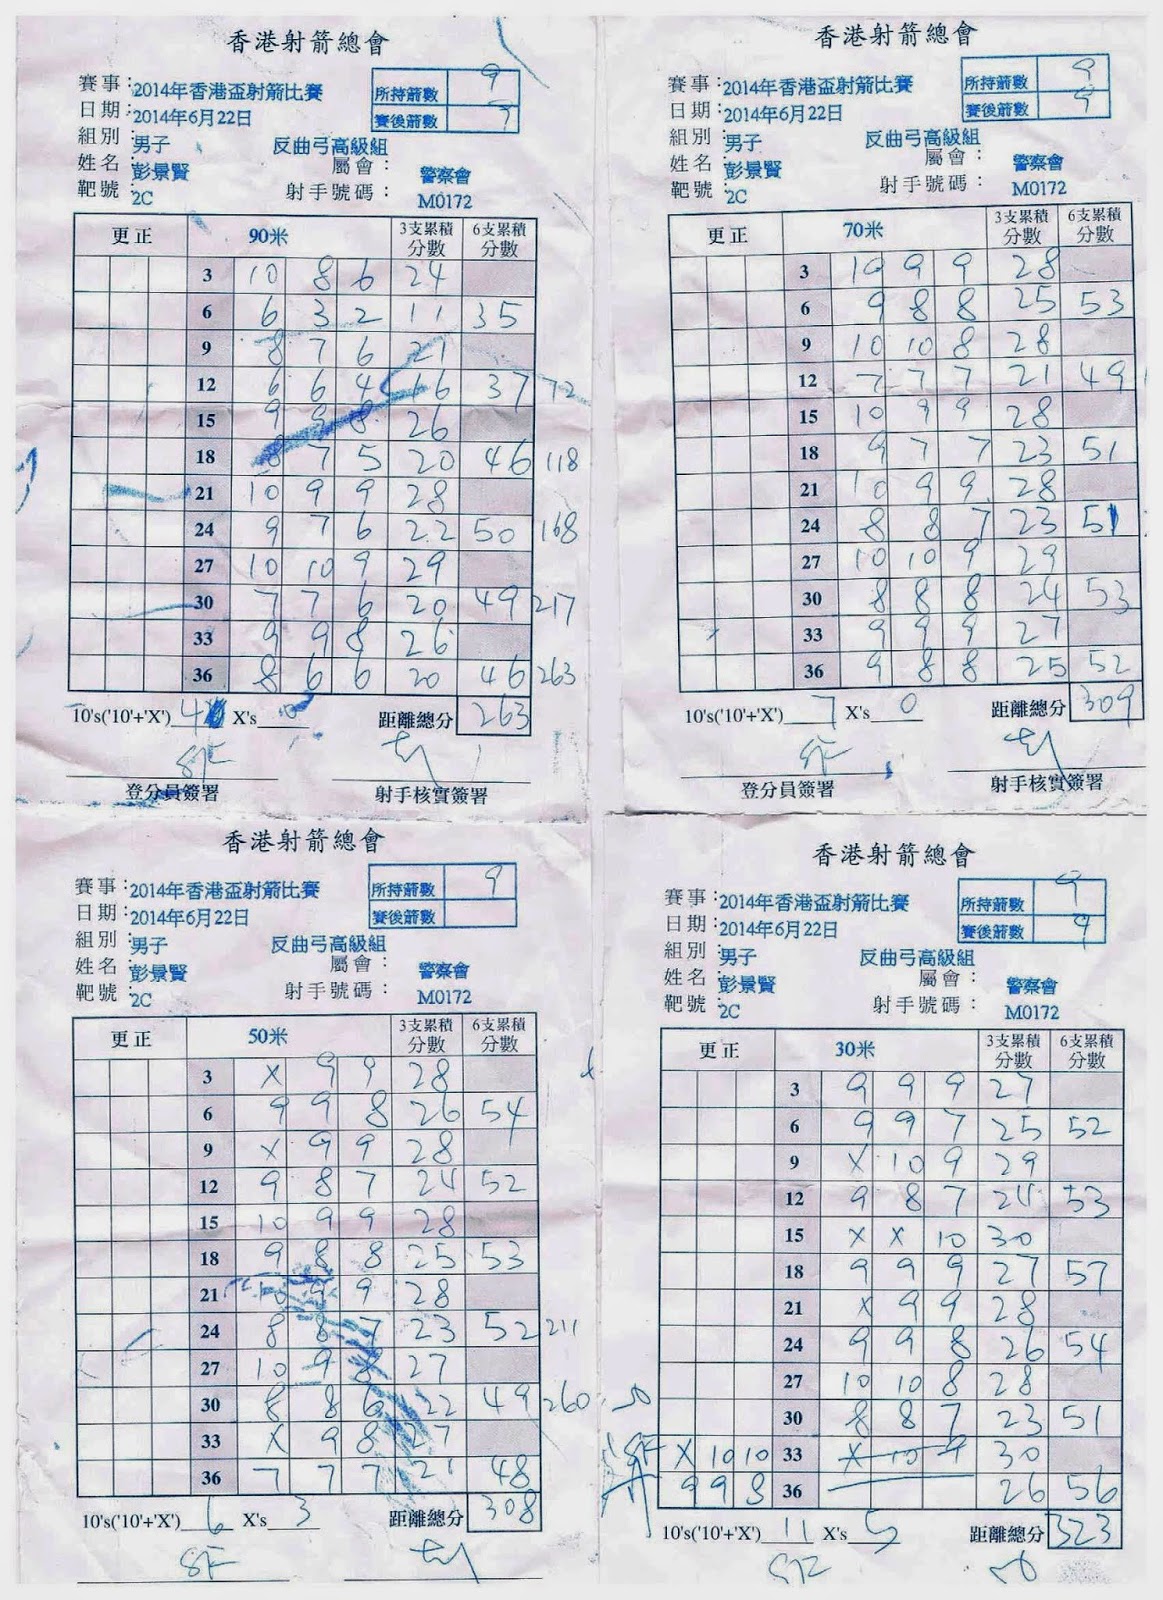 香港射箭總會
賽事: 2014年香港盃射箭比賽 所持箭數 9
日期: 2014年6月22日 賽後箭數 9
組別: 男子 反曲弓高級組
姓名: 彭景賢 屬會: 警察會
靶號: 2C 射手號碼: M0172
更正 90米 3支累積分數 6支累積分數
3 10 8 6 24
6 6 3 2 11 35
9 8 7 6 21
12 6 6 4 16 37 72
15 9 9 8 26
18 8 7 5 20 46 118
21 10 9 9 28
24 9 7 6 22 50 168
27 10 10 9 29
30 7 7 6 20 49 217
33 9 9 8 26
36 8 6 6 20 46 263
10's('10'+'X') 4 X's 距離總分 263
SF
登分員簽署 射手核實簽署
香港射箭總會
賽事: 2014年香港盃射箭比賽 所持箭數 9
日期: 2014年6月22日 賽後箭數 9
組別: 男子 反曲弓高級組
姓名: 彭景賢 屬會: 警察會
靶號: 2C 射手號碼: M0172
更正 70米 3支累積分數 6支累積分數
3 10 9 9 28
6 9 8 8 25 53
9 10 10 8 28
12 7 7 7 21 49
15 10 9 9 28
18 9 7 7 23 51
21 10 9 9 28
24 8 8 7 23 51
27 10 10 9 29
30 8 8 8 24 53
33 9 9 9 27
36 9 8 8 25 52
10's('10'+'X') 7 X's 0 距離總分 309
SF
登分員簽署 射手核實簽署
香港射箭總會
賽事: 2014年香港盃射箭比賽 所持箭數 9
日期: 2014年6月22日 賽後箭數
組別: 男子 反曲弓高級組
姓名: 彭景賢 屬會:
靶號: 2C 射手號碼: 警察會 M0172
更正 50米 3支累積分數 6支累積分數
3 X 9 9 28
6 9 9 8 26 54
9 X 9 9 28
12 9 8 7 24 52
15 10 9 9 28
18 9 8 8 25 53
21 10 9 9 28
24 8 8 7 23 52 211
27 10 9 8 27
30 8 8 6 22 49 260
33 X 9 8 27
36 7 7 7 21 48
10's('10'+'X') 6 X's 3 距離總分 308
SF
香港射箭總會
賽事: 2014年香港盃射箭比賽 所持箭數 9
日期: 2014年6月22日 賽後箭數 9
組別: 男子 反曲弓高級組
姓名: 彭景賢 屬會: 警察會
靶號: 2C 射手號碼: M0172
更正 30米 3支累積分數 6支累積分數
3 9 9 9 27
6 9 9 7 25 52
9 X 10 9 29
12 9 8 7 24 53
15 X X 10 30
18 9 9 9 27 57
21 X 9 9 28
24 9 9 8 26 54
27 10 10 8 28
30 8 8 7 23 51
SF X 10 10 33 X 10 9 30
9 9 8 36 26 56
10's('10'+'X') 11 X's 5 距離總分 323
SF